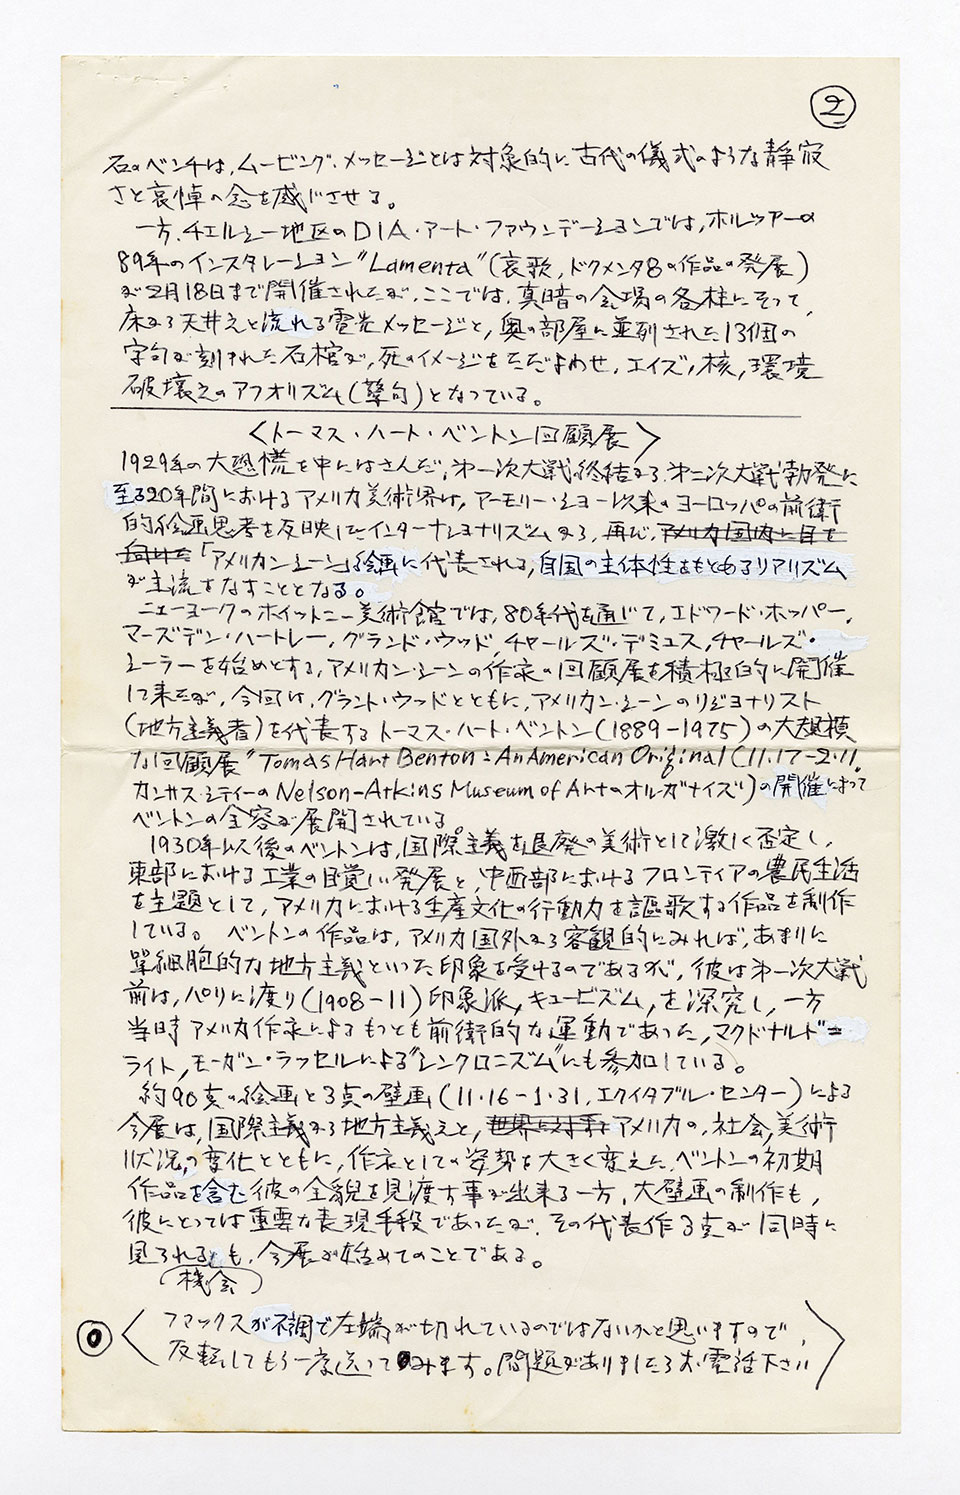 ②
石のベンチは、ムービング・メッセージとは対象的に古代の儀式のような静寂
さと哀悼の念を感じさせる。
一方、チェルシー地区のDIA・アート・ファウンデーションでは、ホルツァーの
89年のインスタレーション"Lamenta"(哀歌,ドクメンタ8の作品の発展)
が2月18日まで開催されたが、ここでは、真暗の会場の各柱にそって、
床から天井えと流れる電光メッセージと、奥の部屋に並列された13個の
字句が刻まれた石棺が、死のイメージをただよわせ、エイズ,核,環境
破壊えのアフオリズム(警句)となっている。
〈トーマス・ハート・ベントン回顧展〉
1929年の大恐慌を中にはさんだ、第一次大戦終結から第二次大戦勃発に
至る20年間におけるアメリカ美術界は、アーモリー・ショー以来のヨーロッパの前衛
的絵画思考を反映したインターナショナリズムから、再び、アメリカ国内に目を
向けた「アメリカンシーン」絵画に代表される、自国の主体性をもとめるリアリズム
が主流をなすこととなる。
ニューヨークのホイットニー美術館では、80年代を通じて、エドワード・ホッパー、
マーズデン・ハートレー,グランド・ウッド,チャールズ・デミュス,チャールズ・
シーラーを始めとする、アメリカン・シーンの作家の回顧展を積極的に開催
して来たが、今回は、グラント・ウッドとともに、アメリカン・シーンのリジョナリスト
(地方主義者)を代表するトーマス・ハート・ベントン(1889-1975)の大規模
な回顧展"Tomas Hart Benton: An American Original(11.17-2.11,
カンサス・シティーのNelson-Atkins Museum of Artのオルガナイズ)の開催によって
ベントンの全容が展開されている。
1930年以後のベントンは、国際主義を退廃の美術として激しく否定し、
東部における工業の目覚しい発展と、中西部におけるフロンティアの農民生活
を主題として、アメリカにおける生産文化の行動力を謳歌する作品を制作
している。ベントンの作品は、アメリカ国外から客観的にみれば、あまりに
単細胞的な地方主義といった印象を受けるのであるが、彼は第一次大戦
前は、パリに渡り(1908-11)印象派,キュービズム,を深究し、一方
当時アメリカ作家によるもっとも前衛的な運動であった,マクドナルド=
ライト,モーガン・ラッセルによる"シンクロニズム"にも参加している。
約90点の絵画と3点の壁画(11.16-1.31,エクイタブル・センター)による
今展は、国際主義から地方主義えと、世界に対するアメリカの,社会,美術
状況の変化とともに、作家としての姿勢を大きく変えた、ベントンの初期
作品を含む彼の全貌を見渡す事が出来る一方、大壁画の制作も、
彼にとっては重要な表現手段であったが、その代表作3点が同時に
見られるも、今展が始めてのことである。
機会
◎〈ファックスが不調で左端が切れているのではないかと思いますので、
反転してもう一度送ってみます。問題がありましたらお電話下さい〉